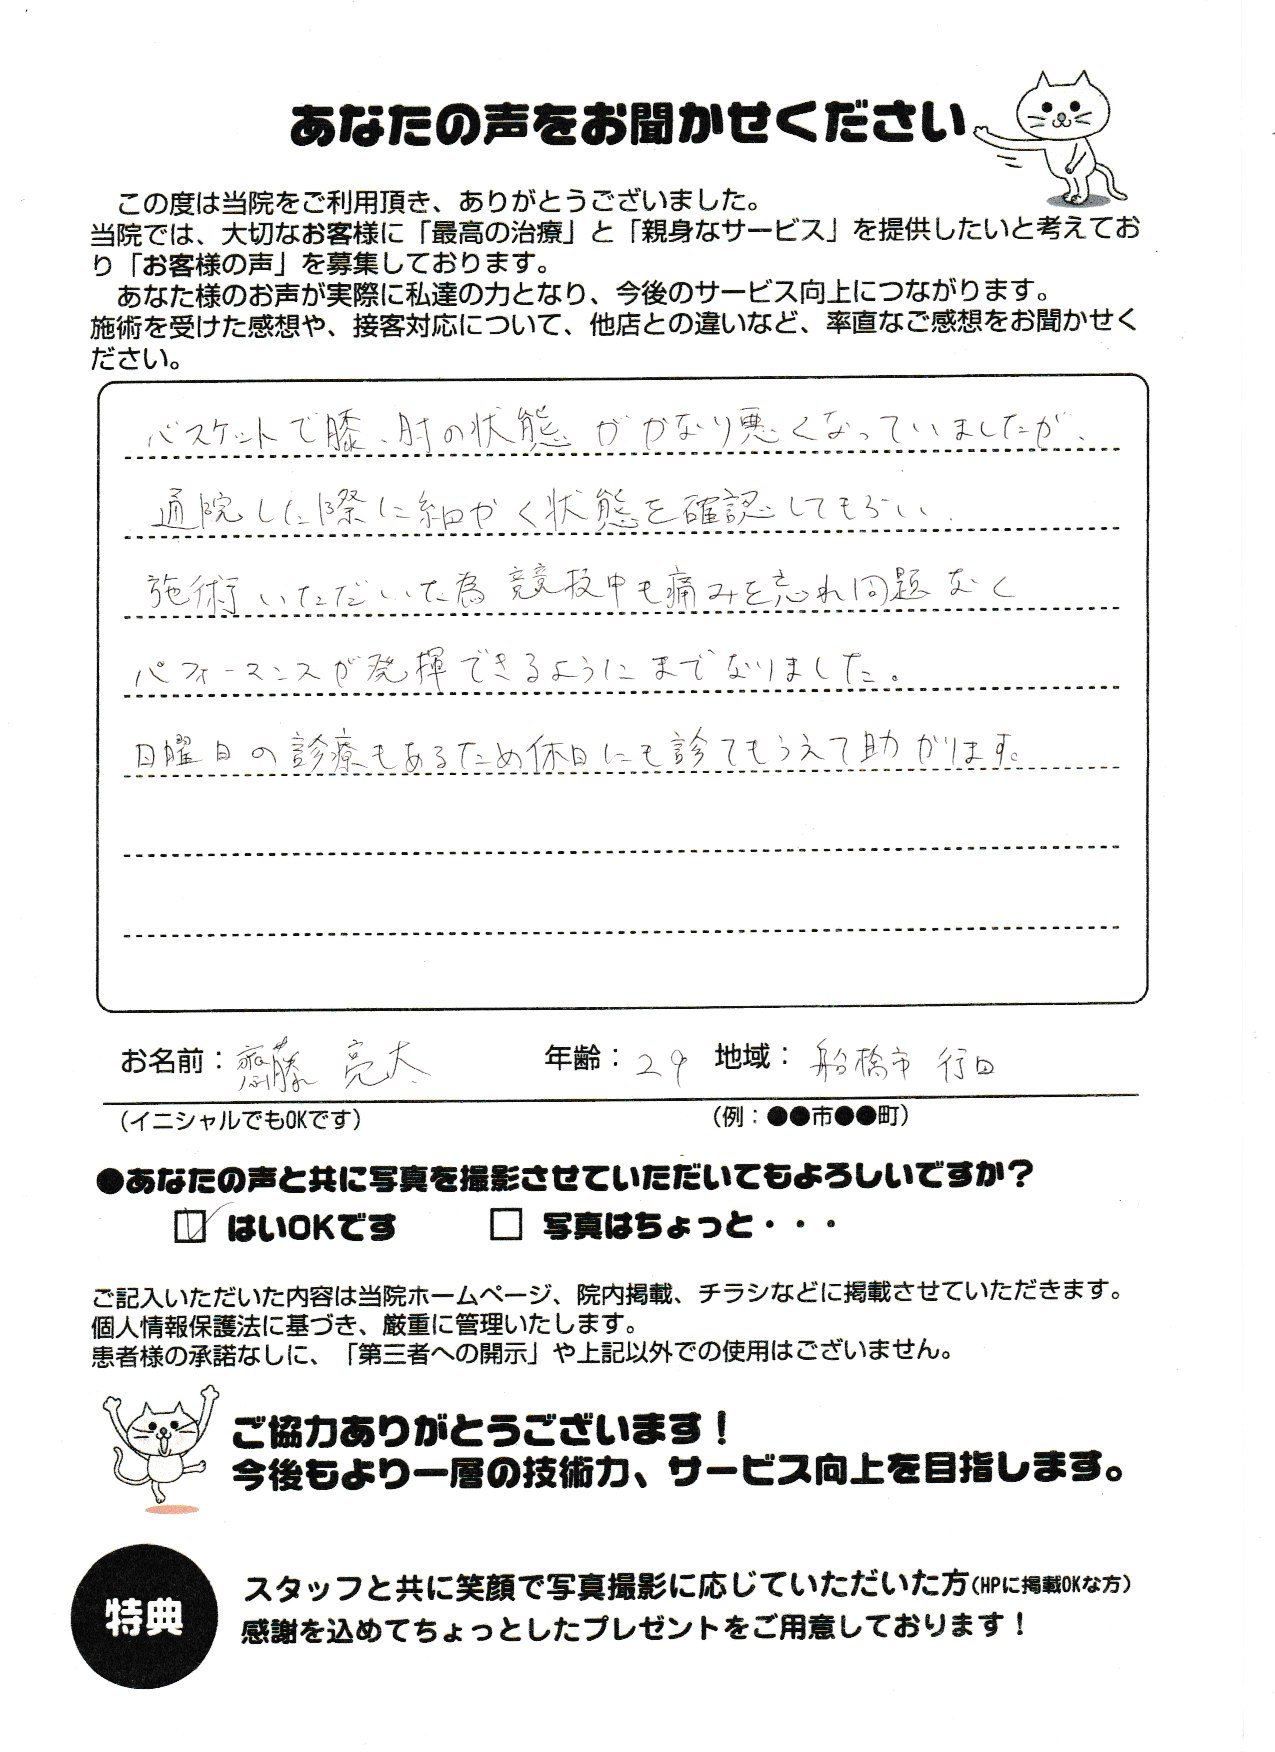 あなたの声をお聞かせください
この度は当院をご利用頂き、ありがとうございました。
当院では、大切なお客様に「最高の治療」と「親身なサービス」を提供したいと考えてお
り「お客様の声」を募集しております。
あなた様のお声が実際に私達の力となり、今後のサービス向上につながります。
施術を受けた感想や、接客対応について、他店との違いなど、率直なご感想をお聞かせく
ださい。
バスケットで膝、肘の状態がかなり悪くなっていましたが、
通院した際に細かく状態を確認してもらい、
施術いただいた為競技中も痛みを忘れ問題なく
パフォーマンスが発揮できるようにまでなりました。
日曜日の診療もあるため休日にも診てもらえて助かります。
お名前：齋藤 亮太 年齢：29 地域：船橋市 行田
（イニシャルでもOKです） （例：●●市●●町）
●あなたの声と共に写真を撮影させていただいてもよろしいですか？
☑ はいOKです □ 写真はちょっと・・・
ご記入いただいた内容は当院ホームページ、院内掲載、チラシなどに掲載させていただきます。
個人情報保護法に基づき、厳重に管理いたします。
患者様の承諾なしに、「第三者への開示」や上記以外での使用はございません。
ご協力ありがとうございます！
今後もより一層の技術力、サービス向上を目指します。
特典
スタッフと共に笑顔で写真撮影に応じていただいた方（HPに掲載OKな方）
感謝を込めてちょっとしたプレゼントをご用意しております！